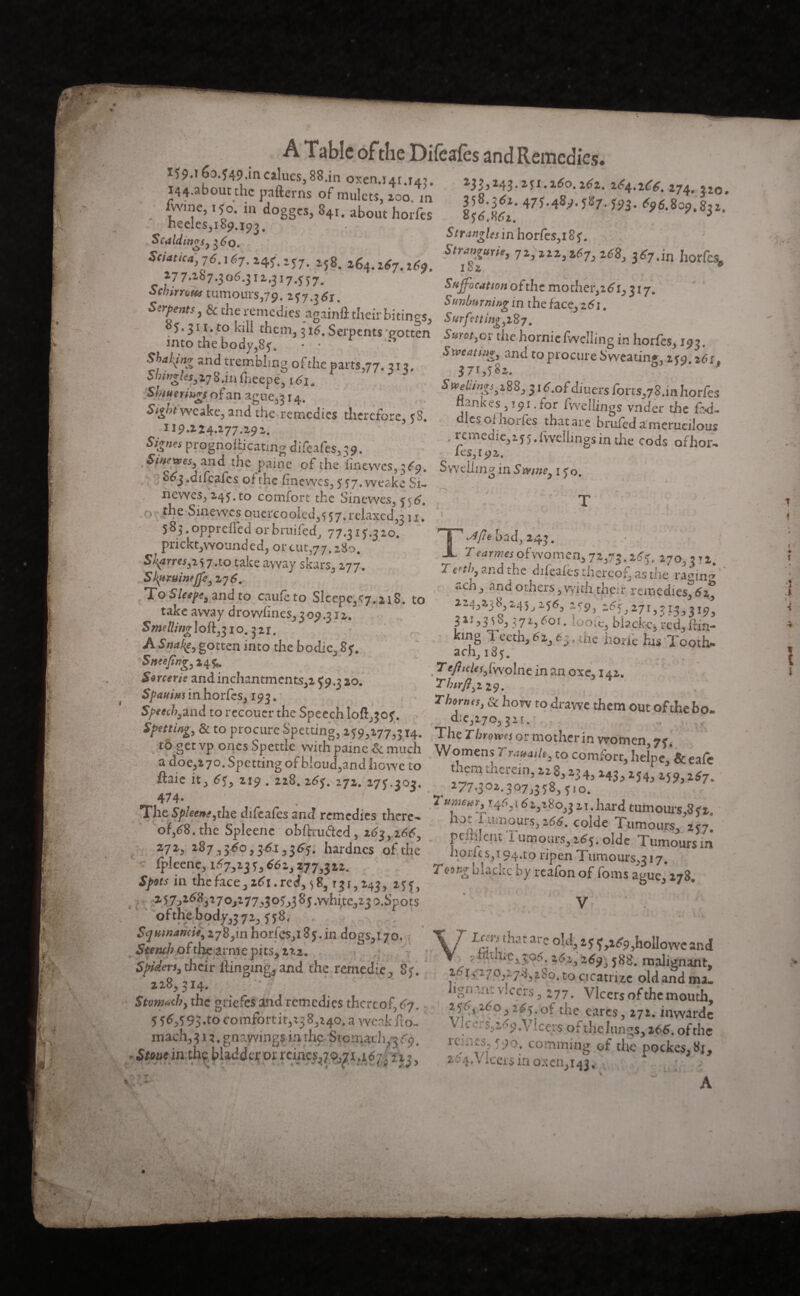 A Table of the Diſeaſes and Remedies.
159.160.549.in calues,88.in oxen.141.143.
144.about the paſterns of mulets, 200. in
ſwine, 150. in dogges, 841. about horſes
heeles,189.193.
Scaldings, 360.
Sciatica, 76.167.245.257. 258. 264.267.269.
277.287.306.312.317.557.
Schirrous tumours,79. 257.361.
Serpents, & the remedies againſt their bitings,
85.311.to kill them, 316. Serpents gotten
into the body,85.
Shaking and trembling of the parts,77. 313.
Shingles,278.in ſheepe, 161.
Shiuerings of an ague,314.
Sight weake, and the remedies therefore, 58.
119.224.277.292.
Signes prognoſticating diſeaſes, 39.
Sinewes, and the paine of the ſinewes,369.
863.diſeaſes of the ſinewes, 557. weake Si-
newes, 245. to comfort the Sinewes, 556.
the Sinewes ouercooled,557.relaxed,311.
583.oppreſſed or bruiſed, 77.315.320.
prickt,wounded, or cut,77. 280.
Skarres,257.to take away skars, 277.
Skuruineſſe, 276.
To Sleepe, and to cauſe to Sleepe,57.218. to
take away drowſines, 309.312.
Smelling loſt,310. 321.
A Snake, gotten into the bodie, 85.
Sneeſing, 245.
Sorcerie and inchantments,259.320.
Spauins in horſes, 193.
Speech,and to recouer the Speech loſt,305.
Spetting, & to procure Spetting, 259,277,314.
to get vp ones Spettle with paine & much
a doe,270. Spetting of bloud,and howe to
ſtaie it, 65, 219. 228. 265. 272. 275.303.
474.
The Spleene,the diſeaſes and remedies there-
of,68. the Spleene obſtructed, 263,266,
272, 287,360,361,365. hardnes of the
ſpleene, 167,235,662,277,322.
Spots in the face, 261.red, 58, 131,243, 255,
257,268,270,277,305,385.white,230.Spots
of the body,372, 558.
Squinancie, 278,in horſes,185. in dogs,170.
Stench of the arme pits, 222.
Spiders, their ſtinging, and the remedie, 85.
228, 314.
Stomach, the griefes and remedies thereof, 67.
556,593.to comfort it,238,240. a weak ſto-
mach,312. gnawings in the Stomach,369.
Stone in the bladder or reines,70,71,167,223,
233,243.251.260.262. 264.266. 274. 320.
358.362. 475.489.587.593. 696.809.832.
856.862.
Strangles in horſes,185.
Strangurie, 72,222,267, 268, 367.in horſes,
182
Suffocation of the mother,261, 317.
Sunburning in the face, 261.
Surfetting,287.
Surot,or the hornie ſwelling in horſes, 193.
Sweating, and to procure Sweating, 259. 261,
371,582.
Swellings,288, 316.of diuers ſorts,78.in horſes
flankes, 191. for ſwellings vnder the ſad-
dles of horſes that are bruſed a merueilous
remedie,255.ſwellings in the cods of hor-
ſes,192.
Swelling in Swine, 150.
T
TAſte bad, 243.
Tearmes of women, 72,73. 265. 270, 312.
Teeth, and the diſeaſes thereof, as the raging
ach, and others, with their remedies, 62,
224,238,245, 256, 259, 265,271,313,319,
321,358, 372, 601. looſe, blacke, red, ſtin-
king Teeth, 62, 63. the horſe his Tooth-
ach, 185.
Teſticles,ſwolne in an oxe, 142.
Thirſt,229.
Thornes, & how to drawe them out of the bo-
die,270, 321.
The Throwes or mother in women, 75.
Womens Trauaile, to comfort, helpe, & eaſe
them therein, 228, 234, 243, 254, 259,267.
277.302.307,358, 510.
Tumour, 146,162,280,321. hard tumours,852.
hot Tumours,266. colde Tumours, 257.
peſtilent Tumours,265. olde Tumours in
horſes,194.to ripen Tumours,317.
Toong blacke by reaſon of ſoms ague, 278.
V
VLcers that are old, 255,269,hollowe and
filthie, 306. 262, 269, 588. malignant,
261,270,278,280. to cicatrize old and ma-
lignant vlcers, 277. Vlcers of the mouth,
256,260, 265. of the eares, 272. inwarde
Vlcers,269.Vlcers of the lungs, 266. of the
reines, 590. comming of the pockes, 81,
264.Vlcers in oxen,143.
A